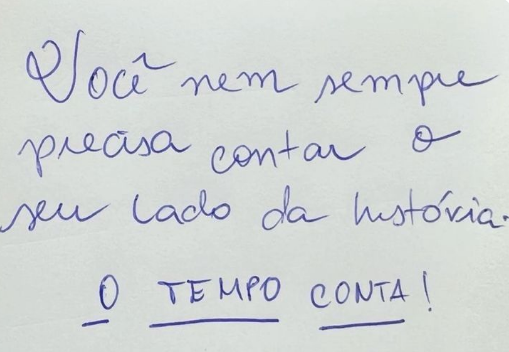 Você nem sempre
precisa contar o
seu lado da história.
O TEMPO CONTA!